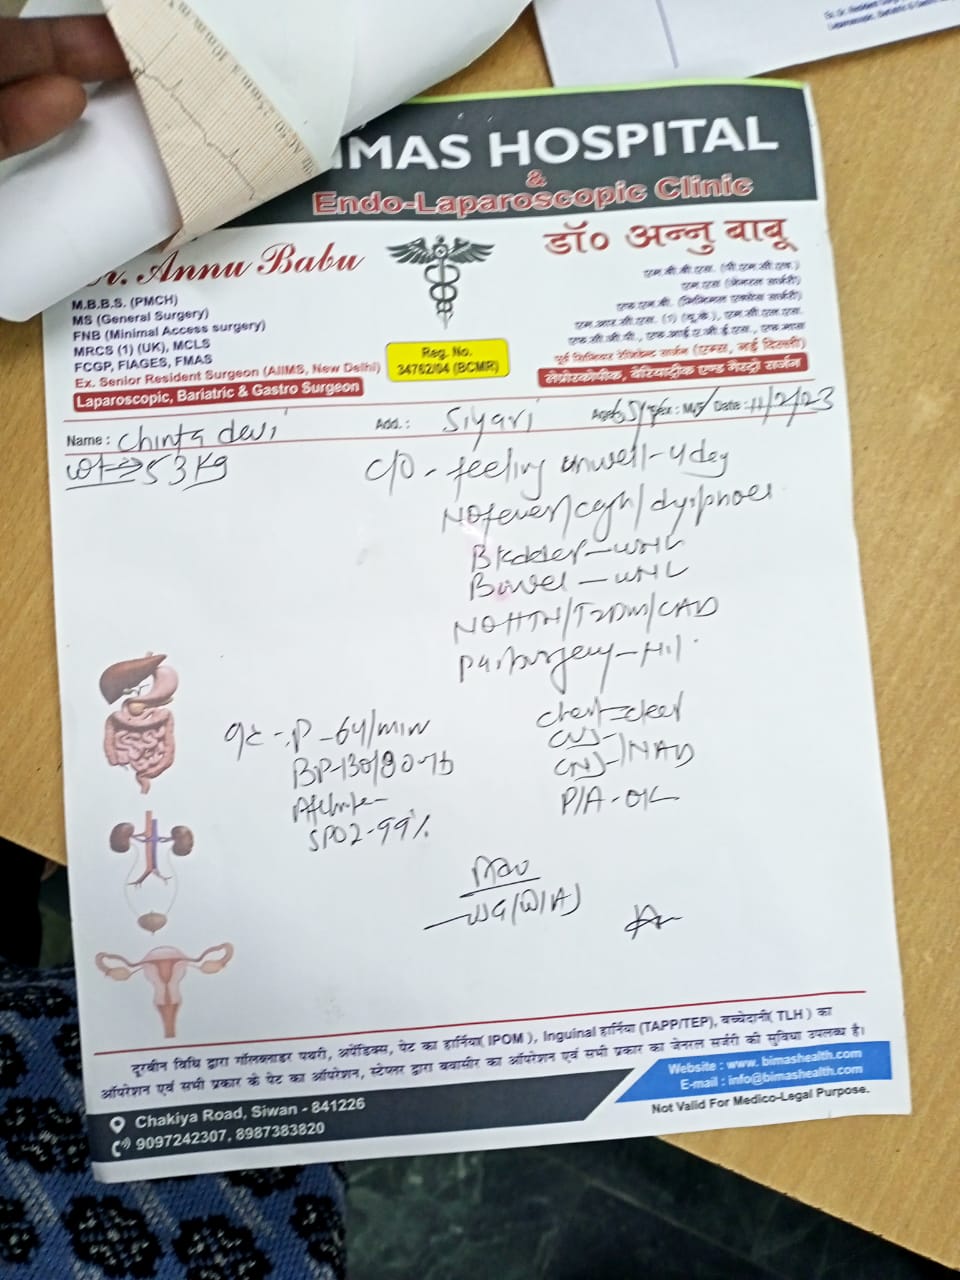 IMAS HOSPITAL
&
Endo-Laparoscopic Clinic
r. Annu Babu
M.B.B.S. (PMCH)
MS (General Surgery)
FNB (Minimal Access surgery)
MRCS (1) (UK), MCLS
FCGP, FIAGES, FMAS
Ex. Senior Resident Surgeon (AIIMS, New Delhi)
Laparoscopic, Bariatric & Gastro Surgeon
Reg. No.
34762/04 (BCMR)
डॉ० अन्नु बाबू
एम.बी.बी.एस. (पी.एम.सी.एच.)
एम.एस (जेनरल सर्जरी)
एफ.एन.बी. (मिनिमल एक्सेस सर्जरी)
एम.आर.सी.एस. (1) (यू.के.), एम.सी.एल.एस.
एफ.सी.जी.पी., एफ.आई.ए.जी.ई.एस., एफ.मास
पूर्व सिनियर रेजिडेन्ट सर्जन (एम्स, नई दिल्ली)
लेप्रोस्कोपीक, बेरियाट्रीक एण्ड गैस्ट्रो सर्जन
Name : Chinta devi Add. : Siyari Age: 65/ Sex : M/F Date : 11/2/23
wt 53 kg
C/O - feeling unwell - 4 day
No fever/cough/
Bladder - WNL
Bowel - WNL
NO HTN/T2DM/CAD
Past surgery - Nil
Chest - clear
CVS -
CNS - NAD
P/A - OK
P - 64/min
BP - 130/80
Afebrile -
SPO2 - 99%
Adv
दूरबीन विधि द्वारा गॉलब्लाडर पथरी, अपेंडिक्स, पेट का हार्निया( IPOM ), Inguinal हार्निया (TAPP/TEP), बच्चेदानी( TLH ) का
ऑपरेशन एवं सभी प्रकार के पेट का ऑपरेशन, स्टेप्लर द्वारा बवासीर का ऑपरेशन एवं सभी प्रकार का जेनरल सर्जरी की सुविधा उपलब्ध है।
Website : www. bimashealth.com
E-mail : info@bimashealth.com
Chakiya Road, Siwan - 841226
9097242307, 8987383820
Not Valid For Medico-Legal Purpose.